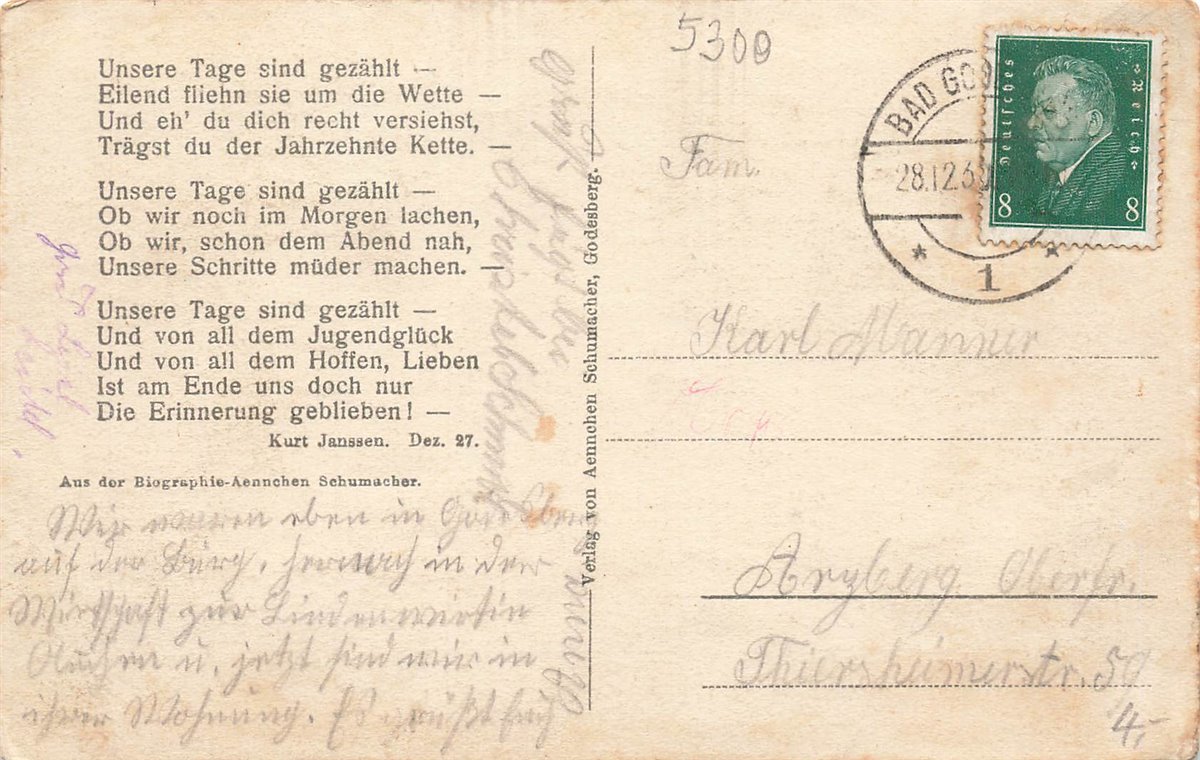 5300
Unsere Tage sind gezählt —
Eilend fliehn sie um die Wette —
Und eh' du dich recht versiehst,
Trägst du der Jahrzehnte Kette. —
Unsere Tage sind gezählt —
Ob wir noch im Morgen lachen,
Ob wir, schon dem Abend nah,
Unsere Schritte müder machen. —
Unsere Tage sind gezählt —
Und von all dem Jugendglück
Und von all dem Hoffen, Lieben
Ist am Ende uns doch nur
Die Erinnerung geblieben! —
Kurt Janssen. Dez. 27.
Aus der Biographie-Aennchen Schumacher.
Wir waren eben in Godesberg
auf der Burg, hernach in der
Wirtschaft zur Lindenwirtin
u. jetzt sind wir in
ihrer Wohnung. Es grüßt Euch
Verlag von Aennchen Schumacher, Godesberg.
BAD GOD
28.12.3
1
Deutsches Reich
8 8
Fam.
Karl
Oberfr.
Thiersheimerstr. 59
4,-